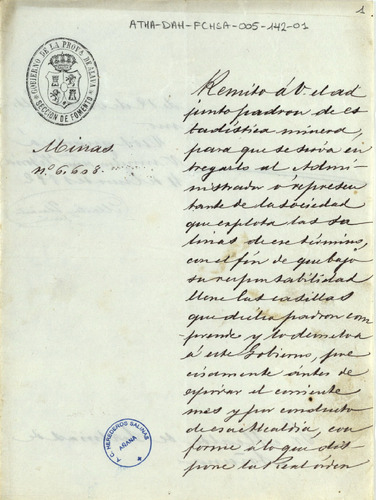 1
ATHA-DAH-FCHSA-005-142-01
GOBIERNO DE LA PROVA DE ALAVA
SECCION DE FOMENTO
Minas
nº 6.608.
Remito á V. el ad
junto padron de es
tadística minera,
para que se sirva en
tregarlo al Admi-
nistrador o represen
tante de la sociedad
que explota las sa
linas de ese término,
con el fin de que bajo
su responsabilidad
llene las casillas
que dicho padron com
prende y lo devuelva
á este Gobierno, pre
cisamente ántes de
espirar el corriente
mes y por conducto
de esa Alcaldia, con
forme á lo que dis
pone la Real órden
A.C. HEREDEROS SALINAS
AÑANA